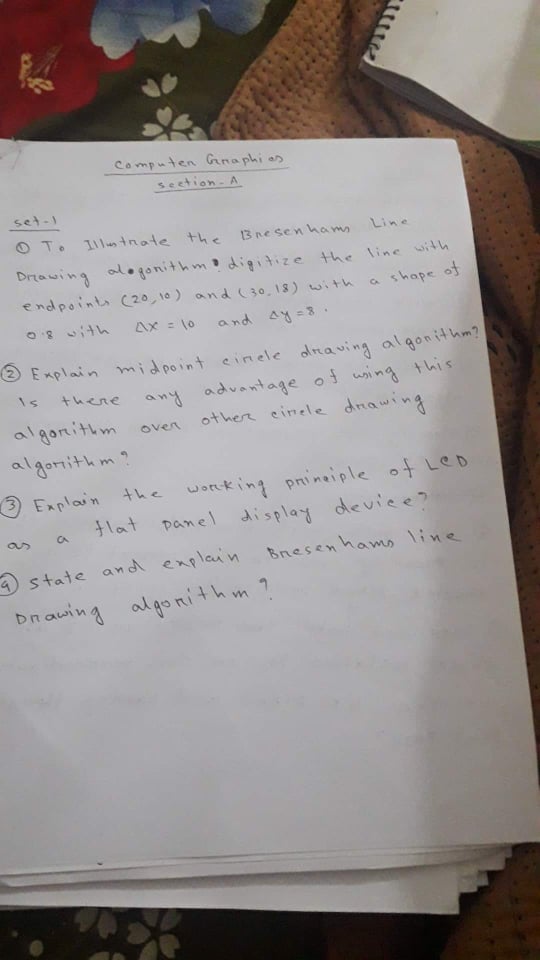 Computer Graphics
Section-A
set-1
① To Illustrate the Bresenhams Line
Drawing alogorithm? digitize the line with
endpoints (20,10) and (30,18) with a shope of
0.8 with ΔX = 10 and Δy = 8.
② Explain midpoint circle drawing algorithm?
Is there any advantage of using this
algorithm over other circle drawing
algorithm?
③ Explain the working principle of LCD
as a flat panel display device?
④ State and explain Bresenhams line
Drawing algorithm?